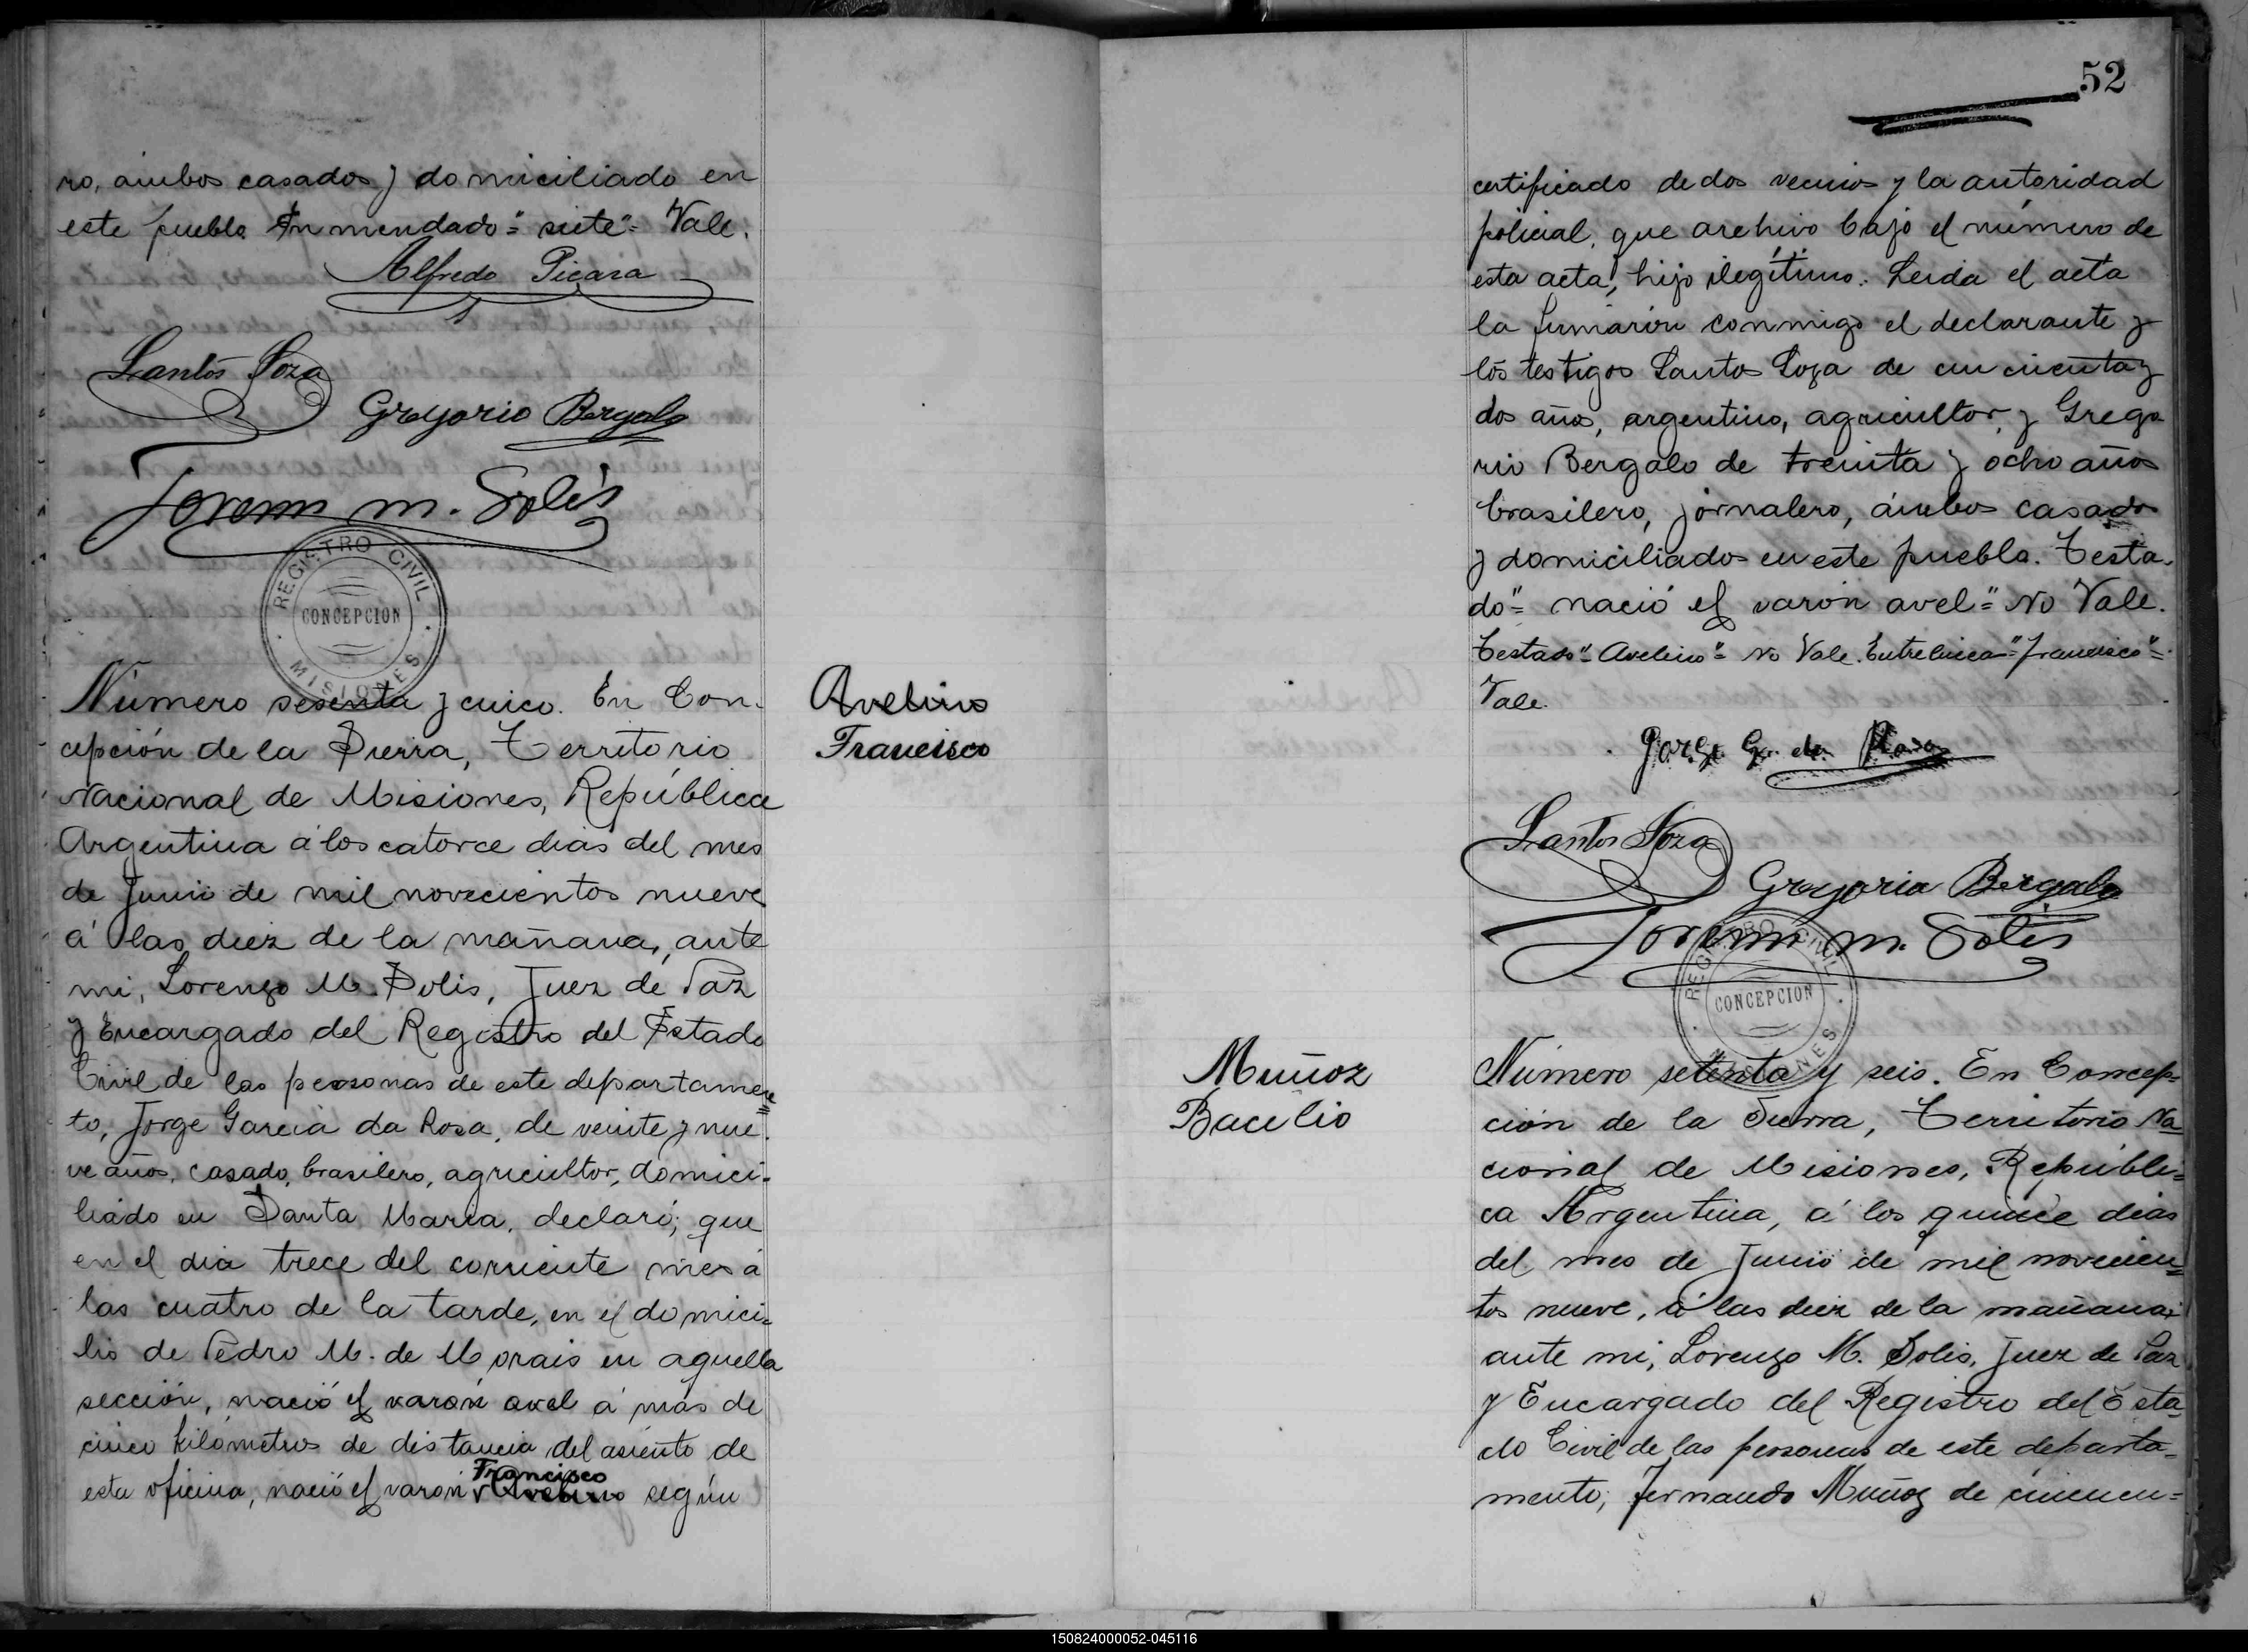 ro, ambos casados y domiciliado en
este pueblo Enmendado="siete"= Vale.
Alfredo Picasa
Santos Soza
Gregorio Bergalo
Lorenzo M. Solis
REGISTRO CIVIL
CONCEPCION
MISIONES
Número sesenta y cinco. En Con-
cepción de la Sierra, Territorio
Nacional de Misiones, República
Argentina á los catorce dias del mes
de Junio de mil novecientos nueve
á las diez de la mañana, ante
mi, Lorenzo M. Solis, Juez de Paz
y Encargado del Registro del Estado
Civil de las personas de este departamen=
to, Jorge Garcia da Rosa, de veinte y nue-
ve años, casado, brasilero, agricultor, domici-
liado en Santa Maria, declaró; que
en el dia trece del corriente mes á
las cuatro de la tarde, en el domici=
lio de Pedro M. de Morais en aquella
sección, nació el varón avel á mas de
cinco kilómetros de distancia del asiento de
Francisco
esta oficina, nació el varón Avelino según
Avelino
Francisco
52
certificado de dos vecinos y la autoridad
policial, que archivo bajo el número de
esta acta, hijo ilegítimo. Leida el acta
la firmarón conmigo el declarante y
los testigos Santos Soza de cincuenta y
dos años, argentino, agricultor, y Grego
rio Bergalo de treinta y ocho años
brasilero, jornalero, ámbos casados
y domiciliados en este pueblo. Testa-
do"= nació el varón avel=" No Vale.
Testado"= Avelino"= No Vale. Entrelinea="Francisco"=
Vale.
Jorge G. da Rosa
Santos Soza
Gregorio Bergalo
Lorenzo M. Solis
REGISTRO CIVIL
CONCEPCION
MISIONES
Muñoz
Bacilio
Número setenta y seis. En Concep=
ción de la Sierra, Territorio Na=
cional de Misiones, Repúbli=
ca Argentina, á los quince dias
del mes de Junio de mil novecien=
tos nueve, á las diez de la mañana;
ante mi, Lorenzo M. Solis, Juez de Paz
y Encargado del Registro del Esta=
do Civil de las personas de este departa=
mento; Fernando Muñoz de cincuen=
150824000052-045116